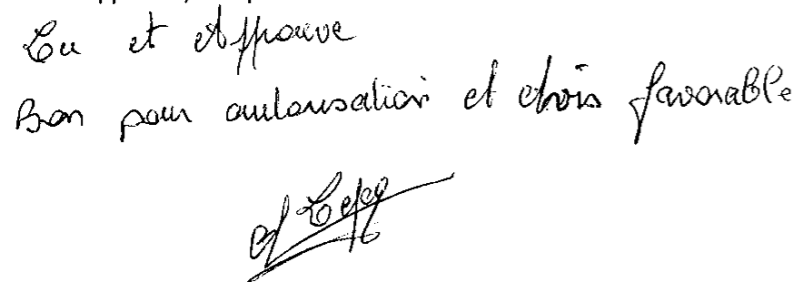 Lu et Approuvé
Bon pour autorisation et avis favorable